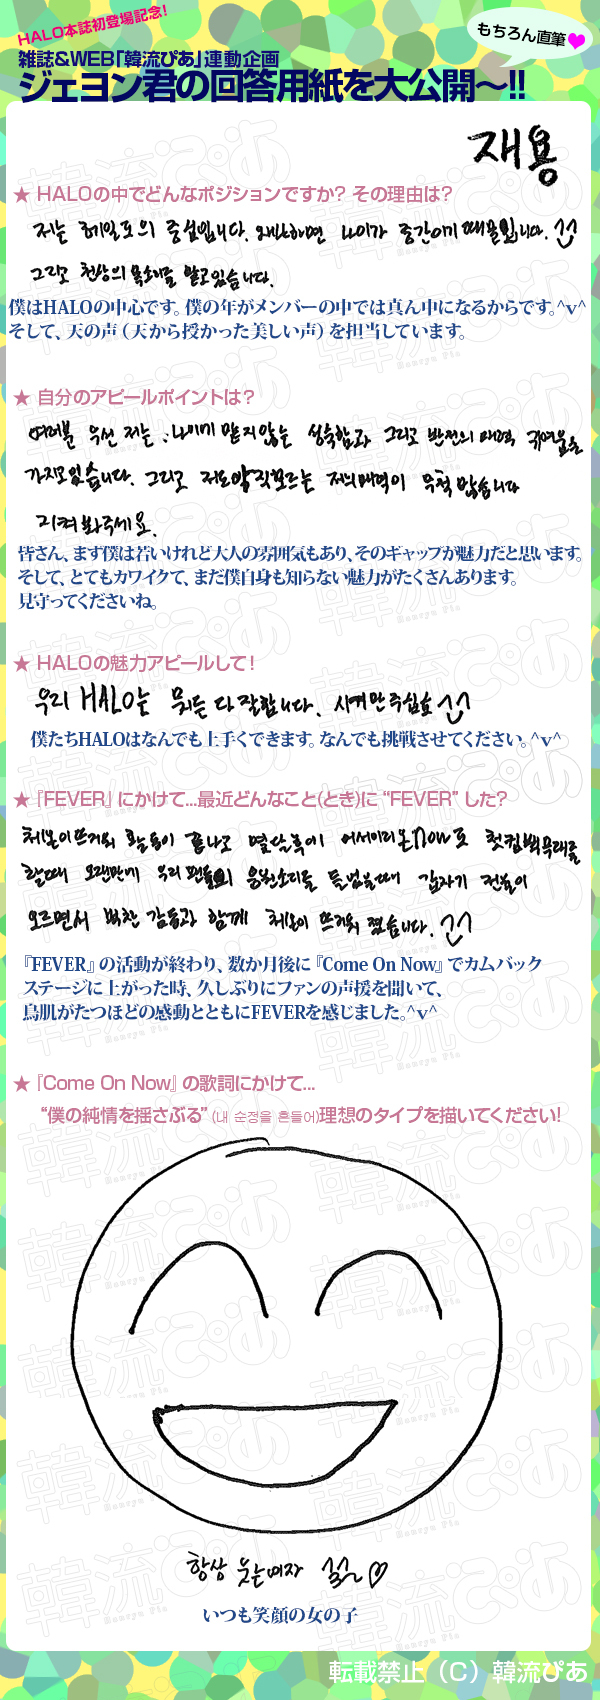 HALO本誌初登場記念!
雑誌&WEB「韓流ぴあ」連動企画
もちろん直筆
ジェヨン君の回答用紙を大公開～!!
재용
★ HALOの中でどんなポジションですか? その理由は?
저는 헤일로의 중심입니다. 왜냐하면 나이가 중간이기 때문입니다.
그리고 천상의 목소리를 맡고있습니다.
僕はHALOの中心です。僕の年がメンバーの中では真ん中になるからです。^v^
そして、天の声（天から授かった美しい声）を担当しています。
★ 自分のアピールポイントは?
여러분 우선 저는 나이에 맞지않는 성숙함과 그리고 반전의 매력 귀여움을
가지고있습니다. 그리고 저도 아직모르는 저의매력이 무척 많습니다
지켜봐주세요.
皆さん、まず僕は若いけれど大人の雰囲気もあり、そのギャップが魅力だと思います。
そして、とてもカワイクて、まだ僕自身も知らない魅力がたくさんあります。
見守ってくださいね。
★ HALOの魅力アピールして!
우리 HALO는 뭐든 다 잘합니다. 시켜만 주십쇼
僕たちHALOはなんでも上手くできます。なんでも挑戦させてください。^v^
★『FEVER』にかけて...最近どんなこと(とき)に “FEVER” した?
체온이뜨거워 활동이 끝나고 몇달후에 어서이리온now로 컷컴백무대를
할때 오랜만에 우리 팬들의 응원소리를 들었을때 갑자기 전율이
오르면서 벅찬 감동과 함께 체온이 뜨거워 졌습니다.
『FEVER』の活動が終わり、数か月後に『Come On Now』でカムバック
ステージに上がった時、久しぶりにファンの声援を聞いて、
鳥肌がたつほどの感動とともにFEVERを感じました。^v^
★『Come On Now』の歌詞にかけて...
“僕の純情を揺さぶる” (내 순정을 흔들어)理想のタイプを描いてください!
항상 웃는여자
いつも笑顔の女の子
転載禁止（C）韓流ぴあ